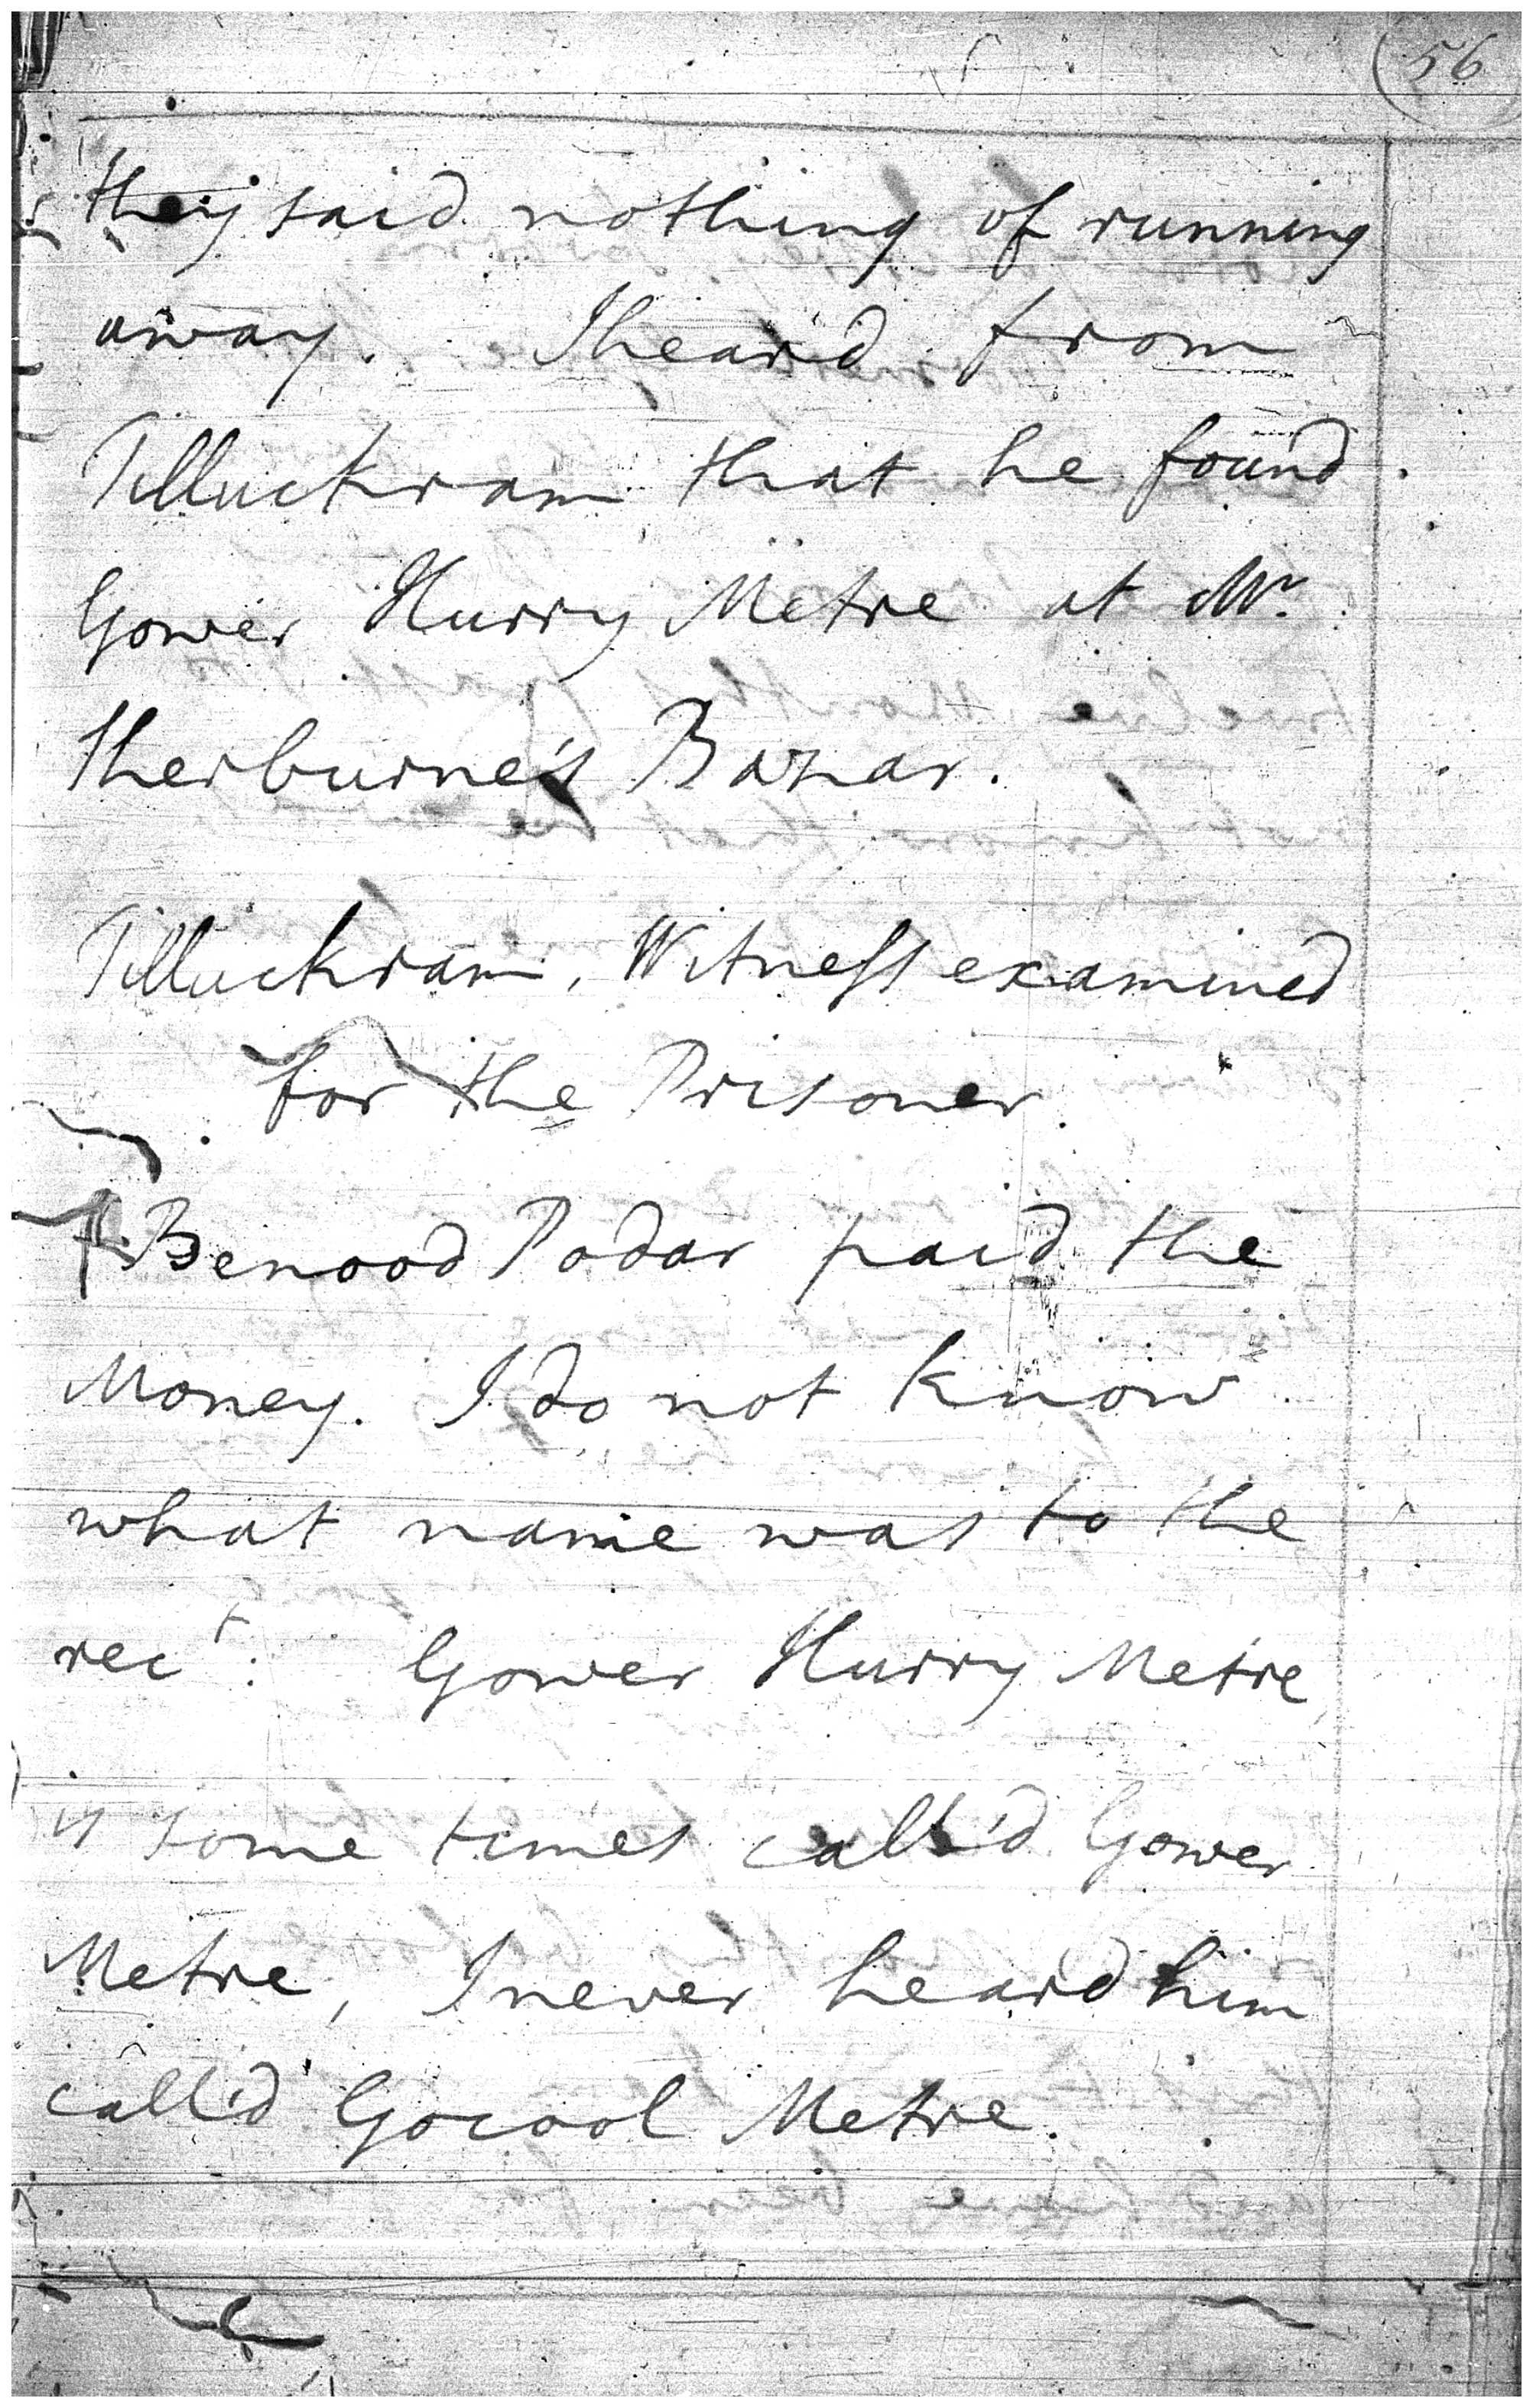 (56
they said nothing of running
away. I heard from
Tilluckram that he found
Gower Hurry Metre at Mr.
Sherburne's Bazar.
Tilluckram, Witness examined
for the Prisoner.
Benood Podar paid the
Money. I do not know
what name was to the
rect. Gower Hurry Metre
is some times call'd Gower
Metre, I never heard him
call'd Gocool Metre.